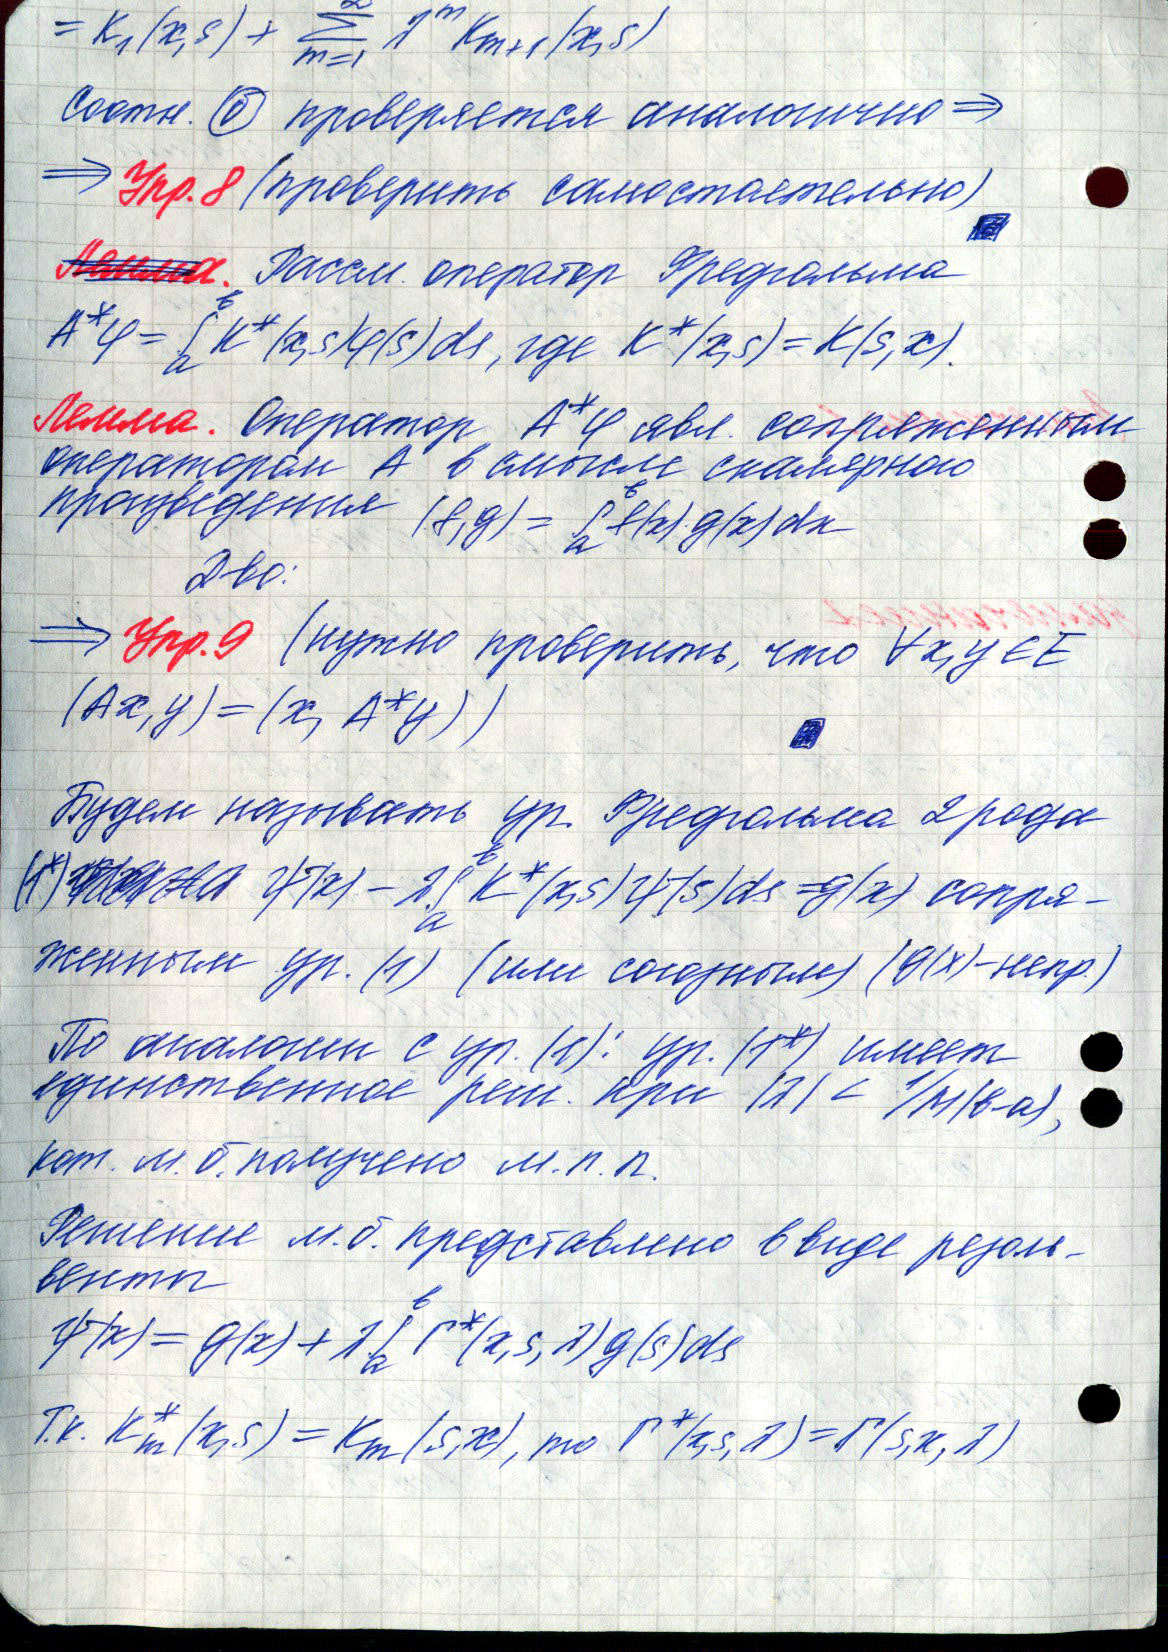 = K₁(x,s) + ∑_{m=1}^{∞} λ^m K_{m+1}(x,s)
Соотн. (б) проверяется аналогично ⇒
⇒ Упр.8 (проверить самостоятельно)
Лемма. Рассм. оператор Фредгольма
A*φ = ∫_a^b K*(x,s)φ(s)ds, где K*(x,s) = K(s,x).
Лемма. Оператор A*φ явл. сопряженным
оператором A в смысле скалярного
произведения (f,g) = ∫_a^b f(x)·g(x)dx
Д-во:
⇒ Упр.9 (нужно проверить, что ∀x,y∈E
(Ax,y) = (x, A*y))
Будем называть ур. Фредгольма 2 рода
(1*) ψ(x) − λ∫_a^b K*(x,s)ψ(s)ds = g(x) сопря-
женным ур. (1) (или союзным) (g(x)-непр.)
По аналогии с ур. (1): ур. (1*) имеет
единственное реш. при |λ| < 1/M(b-a),
кот. м.б. получено м.п.п.
Решение м.б. представлено в виде резоль-
венты
ψ(x) = g(x) + λ∫_a^b Г*(x,s,λ)g(s)ds
Т.к. K*_m(x,s) = K_m(s,x), то Г*(x,s,λ) = Г(s,x,λ)